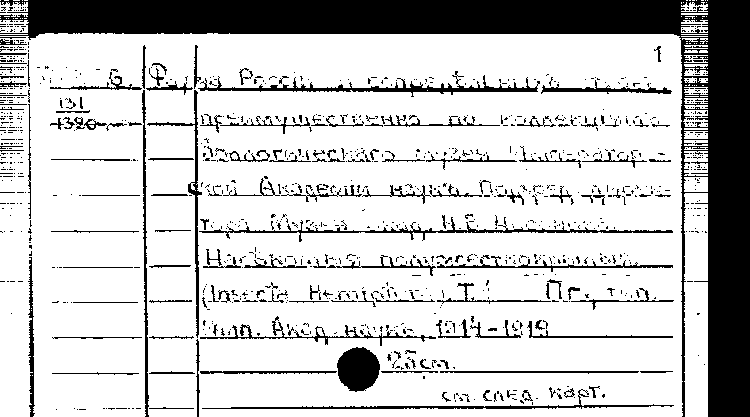 1
6. Фауна Россіи и сопредѣльныхъ стран,
131
1320
преимущественно по коллекціямъ
Зоологическаго музея Император-
ской Академіи наукъ. Под ред. дирек-
тора Музея акад. Н.В. Насонова.
Насѣкомыя полужесткокрылыя.
(Insecta Hemiptera) Т. Пг., тип.
Имп. Акад. наукъ, 1914-1919
25 см.
см. след. карт.